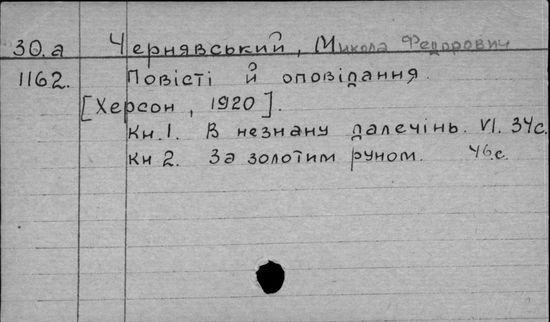 30.а Чернявський, Микола Федорович
1162. Повісті й оповідання.
[Херсон, 1920].
Кн.1. В незнану далечінь. VI. 34с.
Кн 2. За золотим руном. 46с.